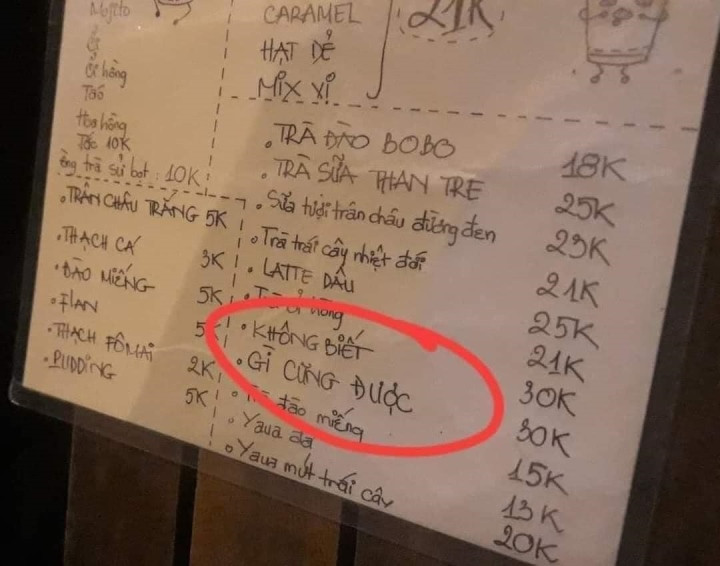 Mojito
ổi
ổi hồng
Táo
Hoa hồng
Tắc 10K
trà sữa bọt : 10K
• TRÂN CHÂU TRẮNG 5K
• THẠCH CÁ 3K
• ĐÀO MIẾNG 5K
• FLAN 5K
• THẠCH FÔMAI 2K
• PUDDING 5K
CARAMEL
HẠT DẺ
MIX VỊ
21K
• TRÀ ĐÀO BOBO 18K
• TRÀ SỮA THAN TRE 25K
• Sữa tươi trân châu đường đen 23K
• Trà trái cây nhiệt đới 21K
• LATTE DÂU 25K
• Trà ổi hồng 21K
• KHÔNG BIẾT 30K
• GÌ CŨNG ĐƯỢC 30K
• Trà đào miếng 15K
• Yaua đá 13K
• Yaua mứt trái cây 20K